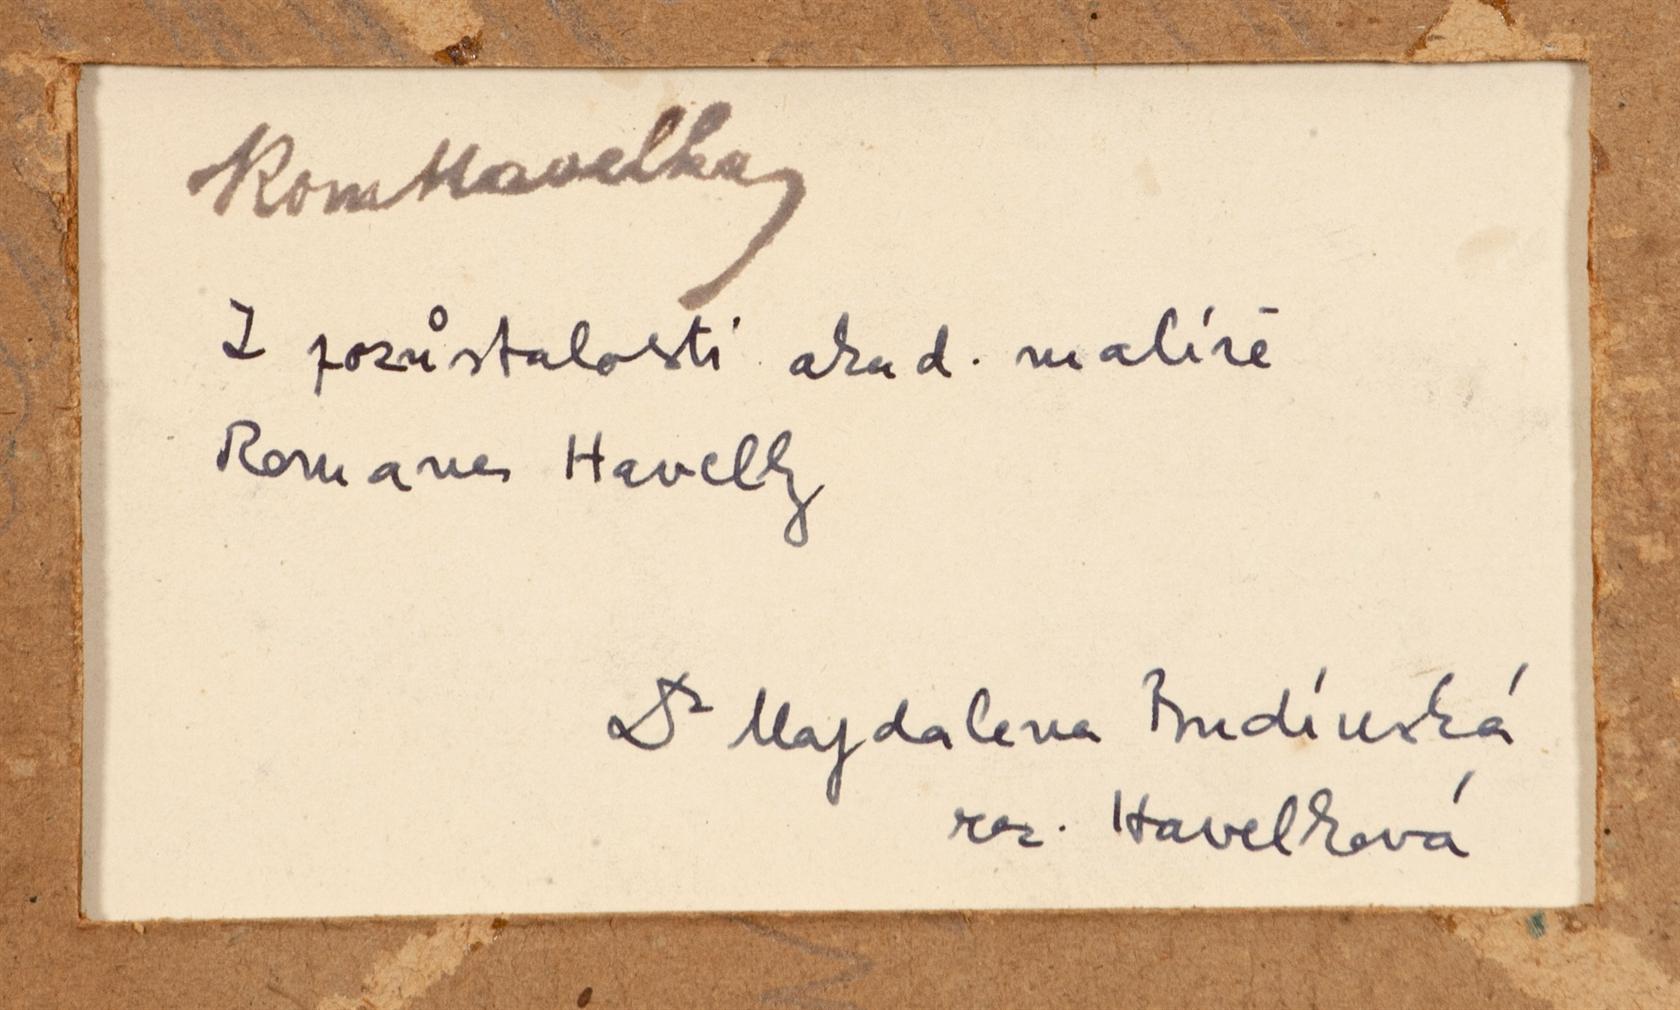 Rom Havelka
Z pozůstalosti akad. malíře
Romana Havelky
Dr Majdalena Budínská
roz. Havelková